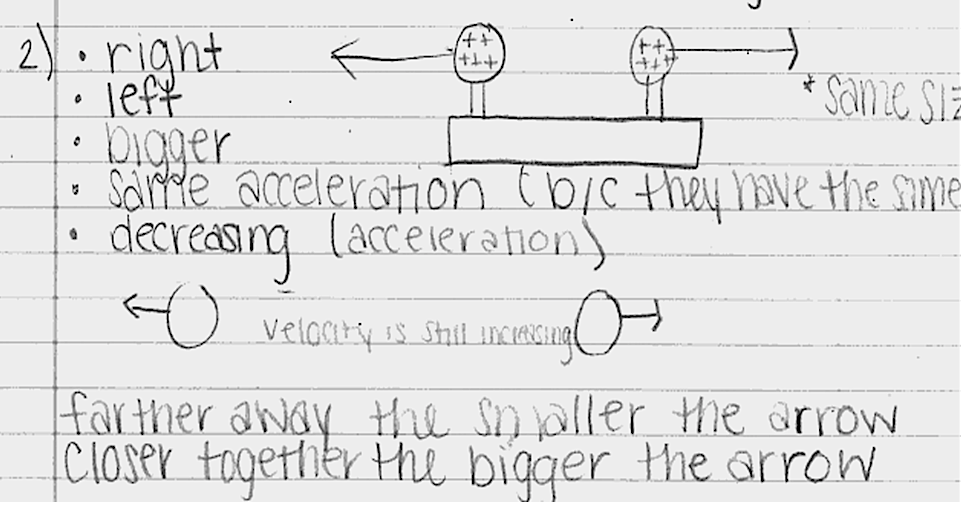 2) • right
• left
* same siz
• bigger
• same acceleration (b/c they have the same
• decreasing (acceleration)
velocity is still increasing
farther away the smaller the arrow
closer together the bigger the arrow